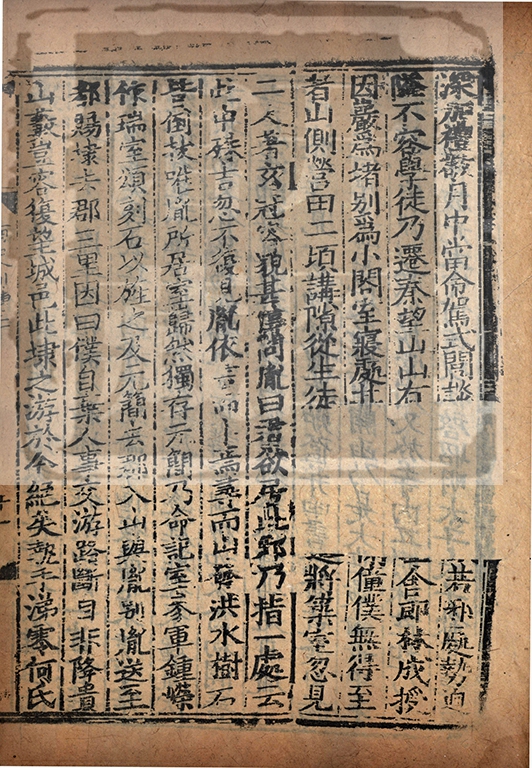 深加禮敬月中常命駕式閭談 若邪處勢迫
隘不容學徒乃遷秦望山山有 舍即林成援
因巖爲堵別爲小閤室寢處其 僮僕無得至
者山側營田二頃講隙從生徒 將築室忽見
二人著玄冠容貌甚偉問胤曰君欲居此邪乃指一處云
此中殊吉忽不復見胤依言而止焉尋而山發洪水樹石
皆倒拔唯胤所居室巋然獨存元簡乃命記室參軍鍾嶸
作瑞室頌刻石以旌之及元簡去郡入山與胤別胤送至
都賜埭去郡三里因曰僕自棄人事交游路斷自非降貴
山藪豈容復望城邑此埭之游於今絕矣執手涕零何氏